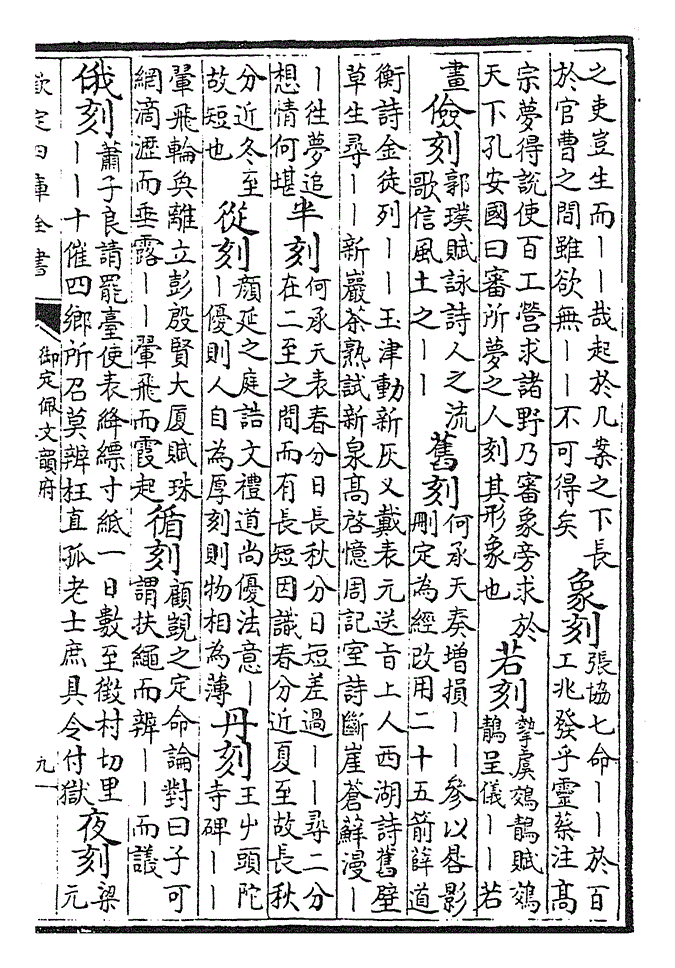 之吏豈生而丨丨哉起於几案之下長
於官曹之間雖欲無丨丨不可得矣
象刻
張協七命丨丨於百
工兆發乎靈蔡注高
宗夢得說使百工營求諸野乃審象旁求於
天下孔安國曰審所夢之人刻其形象也
若刻
摯虞鵁鶄賦鵁
鶄呈儀丨丨若
畫
儉刻
郭璞賦詠詩人之流
歌信風土之丨丨
舊刻
何承天奏增損丨丨參以晷影
刪定為經改用二十五箭薛道
衡詩金徒列丨丨玉津動新灰又戴表元送旨上人西湖詩舊壁
草生尋丨丨新巖茶熟試新泉高啓憶周記室詩斷崖蒼蘚漫丨
丨徃夢追
想情何堪
半刻
何承天表春分日長秋分日短差過丨丨尋二分
在二至之間而有長短因識春分近夏至故長秋
分近冬至
故短也
從刻
顔延之庭誥文禮道尚優法意丨
丨優則人自為厚刻則物相為薄
丹刻
王屮頭陀
寺碑丨丨
翬飛輪奐離立彭殷賢大厦賦珠
網滴瀝而垂露丨丨翬飛而霞起
循刻
顧覬之定命論對曰子可
謂扶繩而辨丨丨而議
俄刻
蕭子良請罷臺使表絳縹寸紙一日數至徴村切里
丨丨十催四鄉所召莫辨枉直孤老士庶具令付獄
夜刻
梁
元
欽定四庫全書
御定佩文韻府
九一